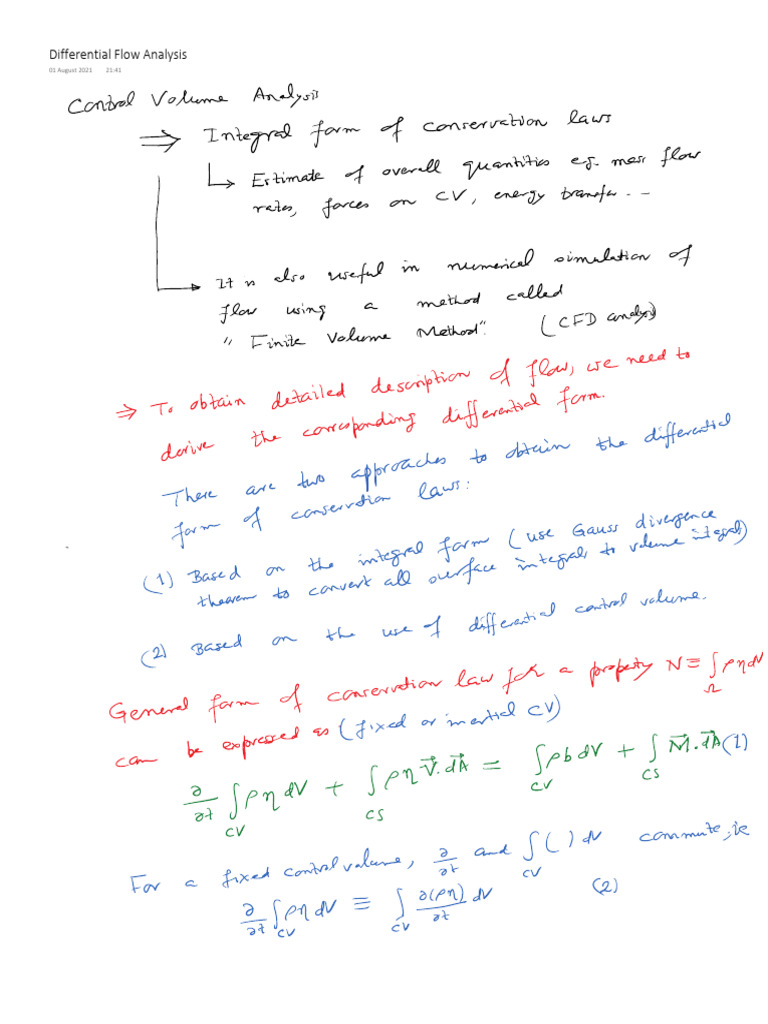 Differential Flow Analysis
01 August 2021 21:41
Control Volume Analysis
⇒ Integral form of conservation laws
↳ Estimate of overall quantities e.g. mass flow
rates, forces on CV, energy transfer ...
→ It is also useful in numerical simulation of
flow using a method called
"Finite Volume Method". (CFD analysis)
⇒ To obtain detailed description of flow, we need to
derive the corresponding differential form.
There are two approaches to obtain the differential
form of conservation laws:
(1) Based on the integral form (use Gauss divergence
theorem to convert all surface integrals to volume integrals)
(2) Based on the use of differential control volume.
General form of conservation law for a property N ≡ ∫_Ω ρη dV
can be expressed as (fixed or inertial CV)
∂/∂t ∫_CV ρη dV + ∫_CS ρη V⃗.dA⃗ = ∫_CV ρb dV + ∫_CS M⃗.dA⃗ (1)
For a fixed control volume, ∂/∂t and ∫_CV ( ) dV commute, ie
∂/∂t ∫_CV ρη dV ≡ ∫_CV ∂(ρη)/∂t dV (2)